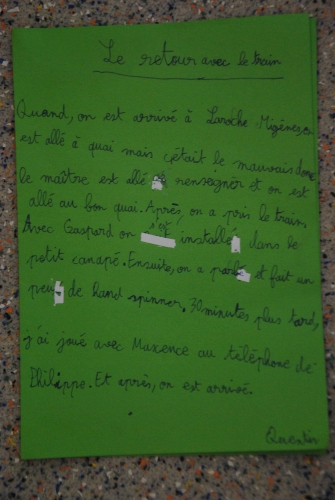 Le retour avec le train
Quand, on est arrivé à Laroche Migènes, on
est allé à quai mais c'était le mauvais donc
le maître est allé se renseigner et on est
allé au bon quai. Après, on a pris le train.
Avec Gaspard on s'est installé dans le
petit canapé. Ensuite, on a parlé et fait un
peu de hand spinner. 30 minutes plus tard,
j'ai joué avec Maxence au téléphone de
Philippe. Et après, on est arrivé.
Quentin